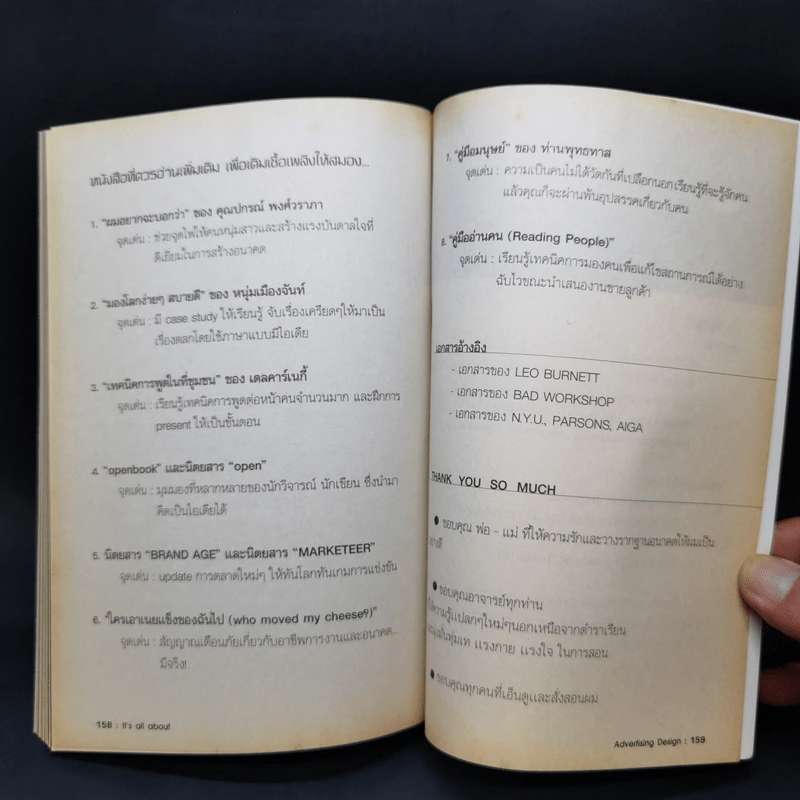 หนังสือที่ควรอ่านเพิ่มเติม เพื่อเติมเชื้อเพลิงให้สมอง...
1. "ผมอยากจะบอกว่า" ของ คุณปกรณ์ พงศ์วราภา
จุดเด่น : ช่วยจุดไฟให้คนหนุ่มสาวและสร้างแรงบันดาลใจที่
ดีเยี่ยมในการสร้างอนาคต
2. "มองโลกง่ายๆ สบายดี" ของ หนุ่มเมืองจันท์
จุดเด่น : มี case study ให้เรียนรู้ จับเรื่องเครียดๆให้มาเป็น
เรื่องตลกโดยใช้ภาษาแบบมีไอเดีย
3. "เทคนิคการพูดในที่ชุมชน" ของ เดลคาร์เนกี้
จุดเด่น : เรียนรู้เทคนิคการพูดต่อหน้าคนจำนวนมาก และฝึกการ
present ให้เป็นขั้นตอน
4. "openbook" และนิตยสาร "open"
จุดเด่น : มุมมองที่หลากหลายของนักวิจารณ์ นักเขียน ซึ่งนำมา
คิดเป็นไอเดียได้
5. นิตยสาร "BRAND AGE" และนิตยสาร "MARKETEER"
จุดเด่น : update การตลาดใหม่ๆ ให้ทันโลกทันเกมการแข่งขัน
6. "ใครเอาเนยแข็งของฉันไป (who moved my cheese?)"
จุดเด่น : สัญญาณเตือนภัยเกี่ยวกับอาชีพการงานและอนาคต...
มีจริง!
158 : It's all about
7. "คู่มือมนุษย์" ของ ท่านพุทธทาส
จุดเด่น : ความเป็นคนไม่ได้วัดกันที่เปลือกนอก เรียนรู้ที่จะรู้จักคน
แล้วคุณก็จะผ่านพ้นอุปสรรคเกี่ยวกับคน
8. "คู่มืออ่านคน (Reading People)"
จุดเด่น : เรียนรู้เทคนิคการมองคนเพื่อแก้ไขสถานการณ์ได้อย่าง
ฉับไวขณะนำเสนองานขายลูกค้า
เอกสารอ้างอิง
- เอกสารของ LEO BURNETT
- เอกสารของ BAD WORKSHOP
- เอกสารของ N.Y.U., PARSONS, AIGA
THANK YOU SO MUCH
● ขอบคุณ พ่อ - แม่ ที่ให้ความรักและวางรากฐานอนาคตให้ผมเป็น
อย่างดี
● ขอบคุณอาจารย์ทุกท่าน
ให้ความรู้แปลกๆใหม่ๆนอกเหนือจากตำราเรียน
ทุ่มเท แรงกาย แรงใจ ในการสอน
● ขอบคุณทุกคนที่เอ็นดูและสั่งสอนผม
Advertising Design : 159